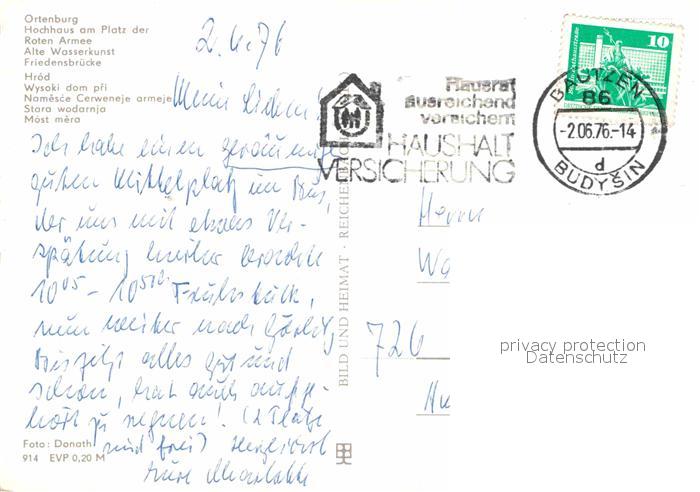 Ortenburg
Hochhaus am Platz der
Roten Armee
Alte Wasserkunst
Friedensbrücke
Hród
Wysoki dom při
Naměsće Cerweneje armeje
Stara wodarnja
Móst měra
2.6.76
Meine Lieben!
Ich habe einen
guten Mittelplatz im Bus,
der uns mit etwas Ver-
spätung hierher brachte
10⁰⁵ - 10⁵⁰ Frühstück,
nun weiter nach Görlitz,
Bis jetzt alles gut und
schön, hat auch aufge-
hört zu regnen! (2 Plätze
sind frei) Herzlichst
Eure
Foto: Donath
914 EVP 0,20 M
BILD UND HEIMAT · REICHENBACH
Hausrat
ausreichend
versichern
HAUSHALT
VERSICHERUNG
10
BAUTZEN
86
-2.06.76.-14
d
BUDYŠIN
Herrn
Wa
726
privacy protection
Datenschutz